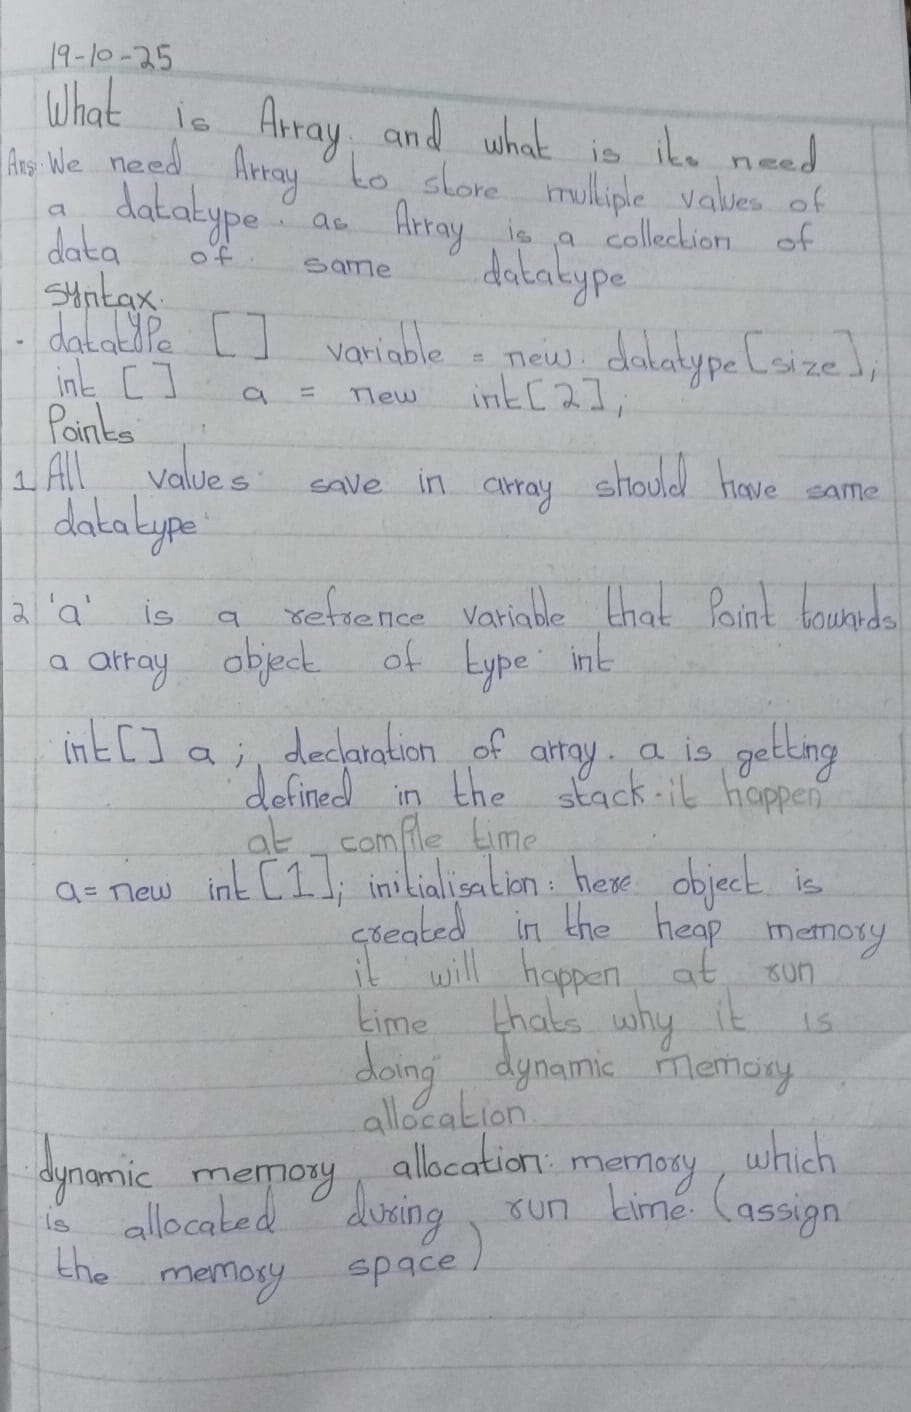 19-10-25
What is Array. and what is its need
Ans. We need Array to store multiple values of
a datatype. as Array is a collection of
data of same datatype
syntax.
. datatype [] variable = new datatype[size];
int [] a = new int[2];
Points
1 All values save in array should have same
datatype
2 'a' is a refrence variable that Point towards
a array object of type int
int[] a; declaration of array. a is getting
defined in the stack. it happen
at compile time
a= new int[1]; initialisation: here object is
created in the heap memory
it will happen at run
time thats why it is
doing dynamic memory
allocation.
dynamic memory allocation: memory, which
is allocated during run time. (assign
the memory space)